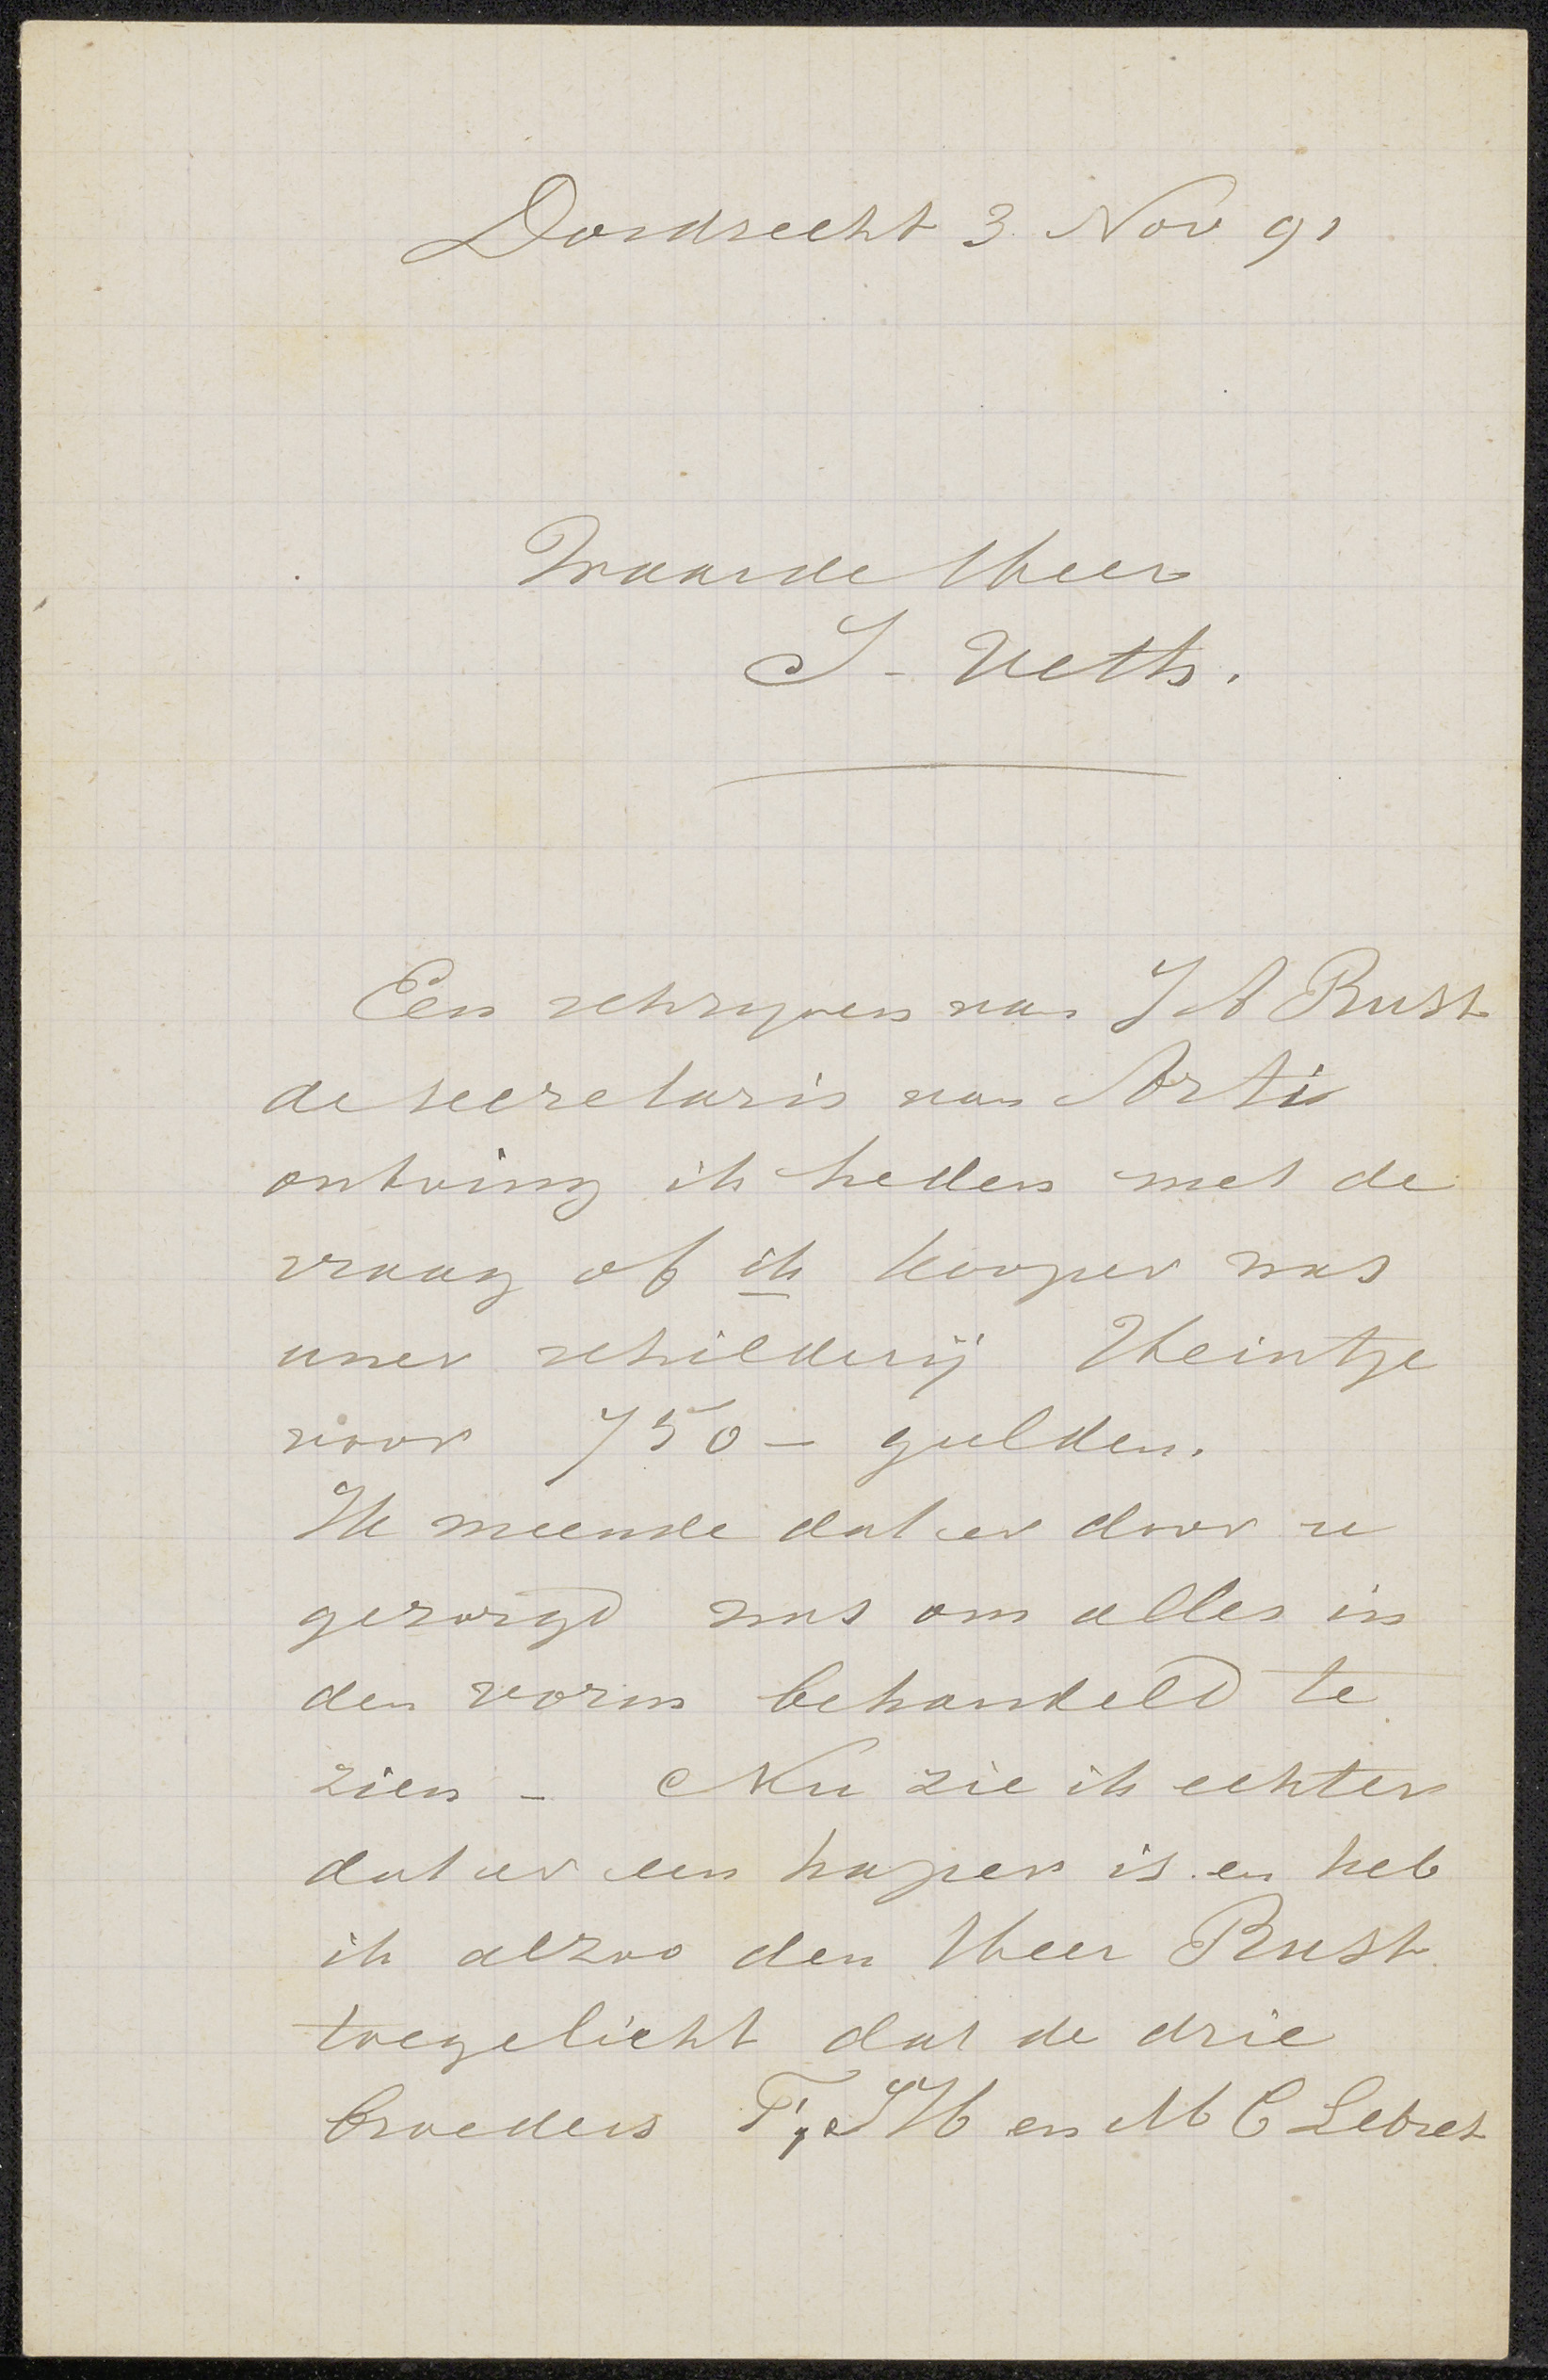 Dordrecht 3 Nov 91
Waarde Heer
J. Veth.
Een schrijven van J A Rust
de secretaris van Arti
ontving ik heden met de
vraag of ik kooper was
uwer schilderij Heintje
voor 750 – gulden.
Ik meende dat er door u
gezorgd was om alles in
den vorm behandeld te
zien – Nu zie ik echter
dat er een haper is en heb
ik alzoo den Heer Rust
toegelicht dat de drie
broeders T, J H en M C Lebret